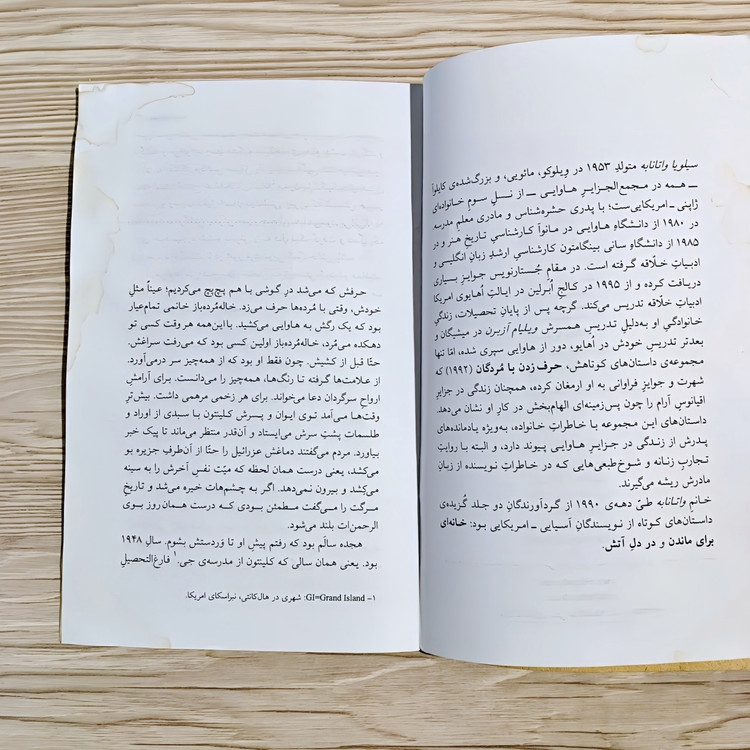 سیلویا واتانابه متولدِ ۱۹۵۳ در وِیلوکو، مائویی، و بزرگ‌شده‌ی کایلوآ
ــ همه در مجمع‌الجزایرِ هاوایی ــ از نسلِ سوم خانواده‌ای
ژاپنی ـ امریکایی‌ست؛ با پدری حشره‌شناس و مادری معلم مدرسه
در ۱۹۸۰ از دانشگاهِ هاوایی در مانوآ کارشناسیِ تاریخِ هنر و در
۱۹۸۵ از دانشگاهِ سانی بینگامتون کارشناسیِ ارشدِ زبانِ انگلیسی و
ادبیاتِ خلّاقه گرفته است. در مقامِ جُستارنویس جوایزِ بسیاری
دریافت کرده و از ۱۹۹۵ در کالجِ اُبرلین در ایالتِ اُهایوی امریکا
ادبیاتِ خلّاقه تدریس می‌کند. گرچه پس از پایانِ تحصیلات، زندگیِ
خانوادگیِ او به‌دلیلِ تدریسِ همسرش ویلیام آزبرن در میشیگان و
بعدتر تدریسِ خودش در اُهایو، دور از هاوایی سپری شده، امّا تنها
مجموعه‌ی داستان‌های کوتاهش، حرف‌زدن با مُردگان (۱۹۹۲) که
شهرت و جوایزِ فراوانی به او ارمغان کرده، همچنان زندگی در جزایرِ
اقیانوسِ آرام را چون پس‌زمینه‌ای الهام‌بخش در کارِ او نشان می‌دهد.
داستان‌های این مجموعه با خاطراتِ خانواده، به‌ویژه یادمانده‌های
پدرش از زندگی در جزایرِ هاوایی پیوند دارد، و البته با روایتِ
تجاربِ زنانه و شوخ‌طبعی‌هایی که در خاطراتِ نویسنده از زبانِ
مادرش ریشه می‌گیرند.
خانم واتانابه طیّ دهه‌ی ۱۹۹۰ از گردآورندگانِ دو جلد گُزیده‌ی
داستان‌های کوتاه از نویسندگانِ آسیایی ـ امریکایی بود: خانه‌ای
برای ماندن و در دلِ آتش.
حرفش که می‌شد درِ گوشی با هم پچ‌پچ می‌کردیم؛ عیناً مثلِ
خودش، وقتی با مُرده‌ها حرف می‌زد. خاله‌مُرده‌باز خانمی تمام‌عیار
بود که یک رگش به هاوایی می‌کشید. با این‌همه هر وقت کسی تو
دهکده می‌مُرد، خاله‌مُرده‌باز اولین کسی بود که می‌رفت سراغش.
حتّا قبل از کشیش. چون فقط او بود که از همه‌چیز سر درمی‌آورد.
از علامت‌ها گرفته تا رنگ‌ها، همه‌چیز را می‌دانست. برای آرامشِ
ارواحِ سرگردان دعا می‌خواند. برای هر زخمی مرهمی داشت. بیش‌ترِ
وقت‌ها می‌آمد توی ایوان و پسرش کلینتون با سبدی از اوراد و
طلسمات پشتِ سرش می‌ایستاد و آن‌قدر منتظر می‌ماند تا پیک خبر
بیاورد. مردم می‌گفتند دماغش عزرائیل را حتّا از آن‌طرفِ جزیره بو
می‌کشد، یعنی درست همان لحظه که میّت نفسِ آخرش را به سینه
می‌کِشد و بیرون نمی‌دهد. اگر به چشم‌هات خیره می‌شد و تاریخِ
مرگت را می‌گفت مطمئن بودی که درست همان روز بوی
الرحمن‌ات بلند می‌شود.
هجده سالَم بود که رفتم پیشِ او تا وَردستش بشوم. سالِ ۱۹۴۸
بود. یعنی همان سالی که کلینتون از مدرسه‌ی جی.۱ فارغ‌التحصیل
۱- GI=Grand Island: شهری در هال‌کانتی، نبراسکای امریکا.